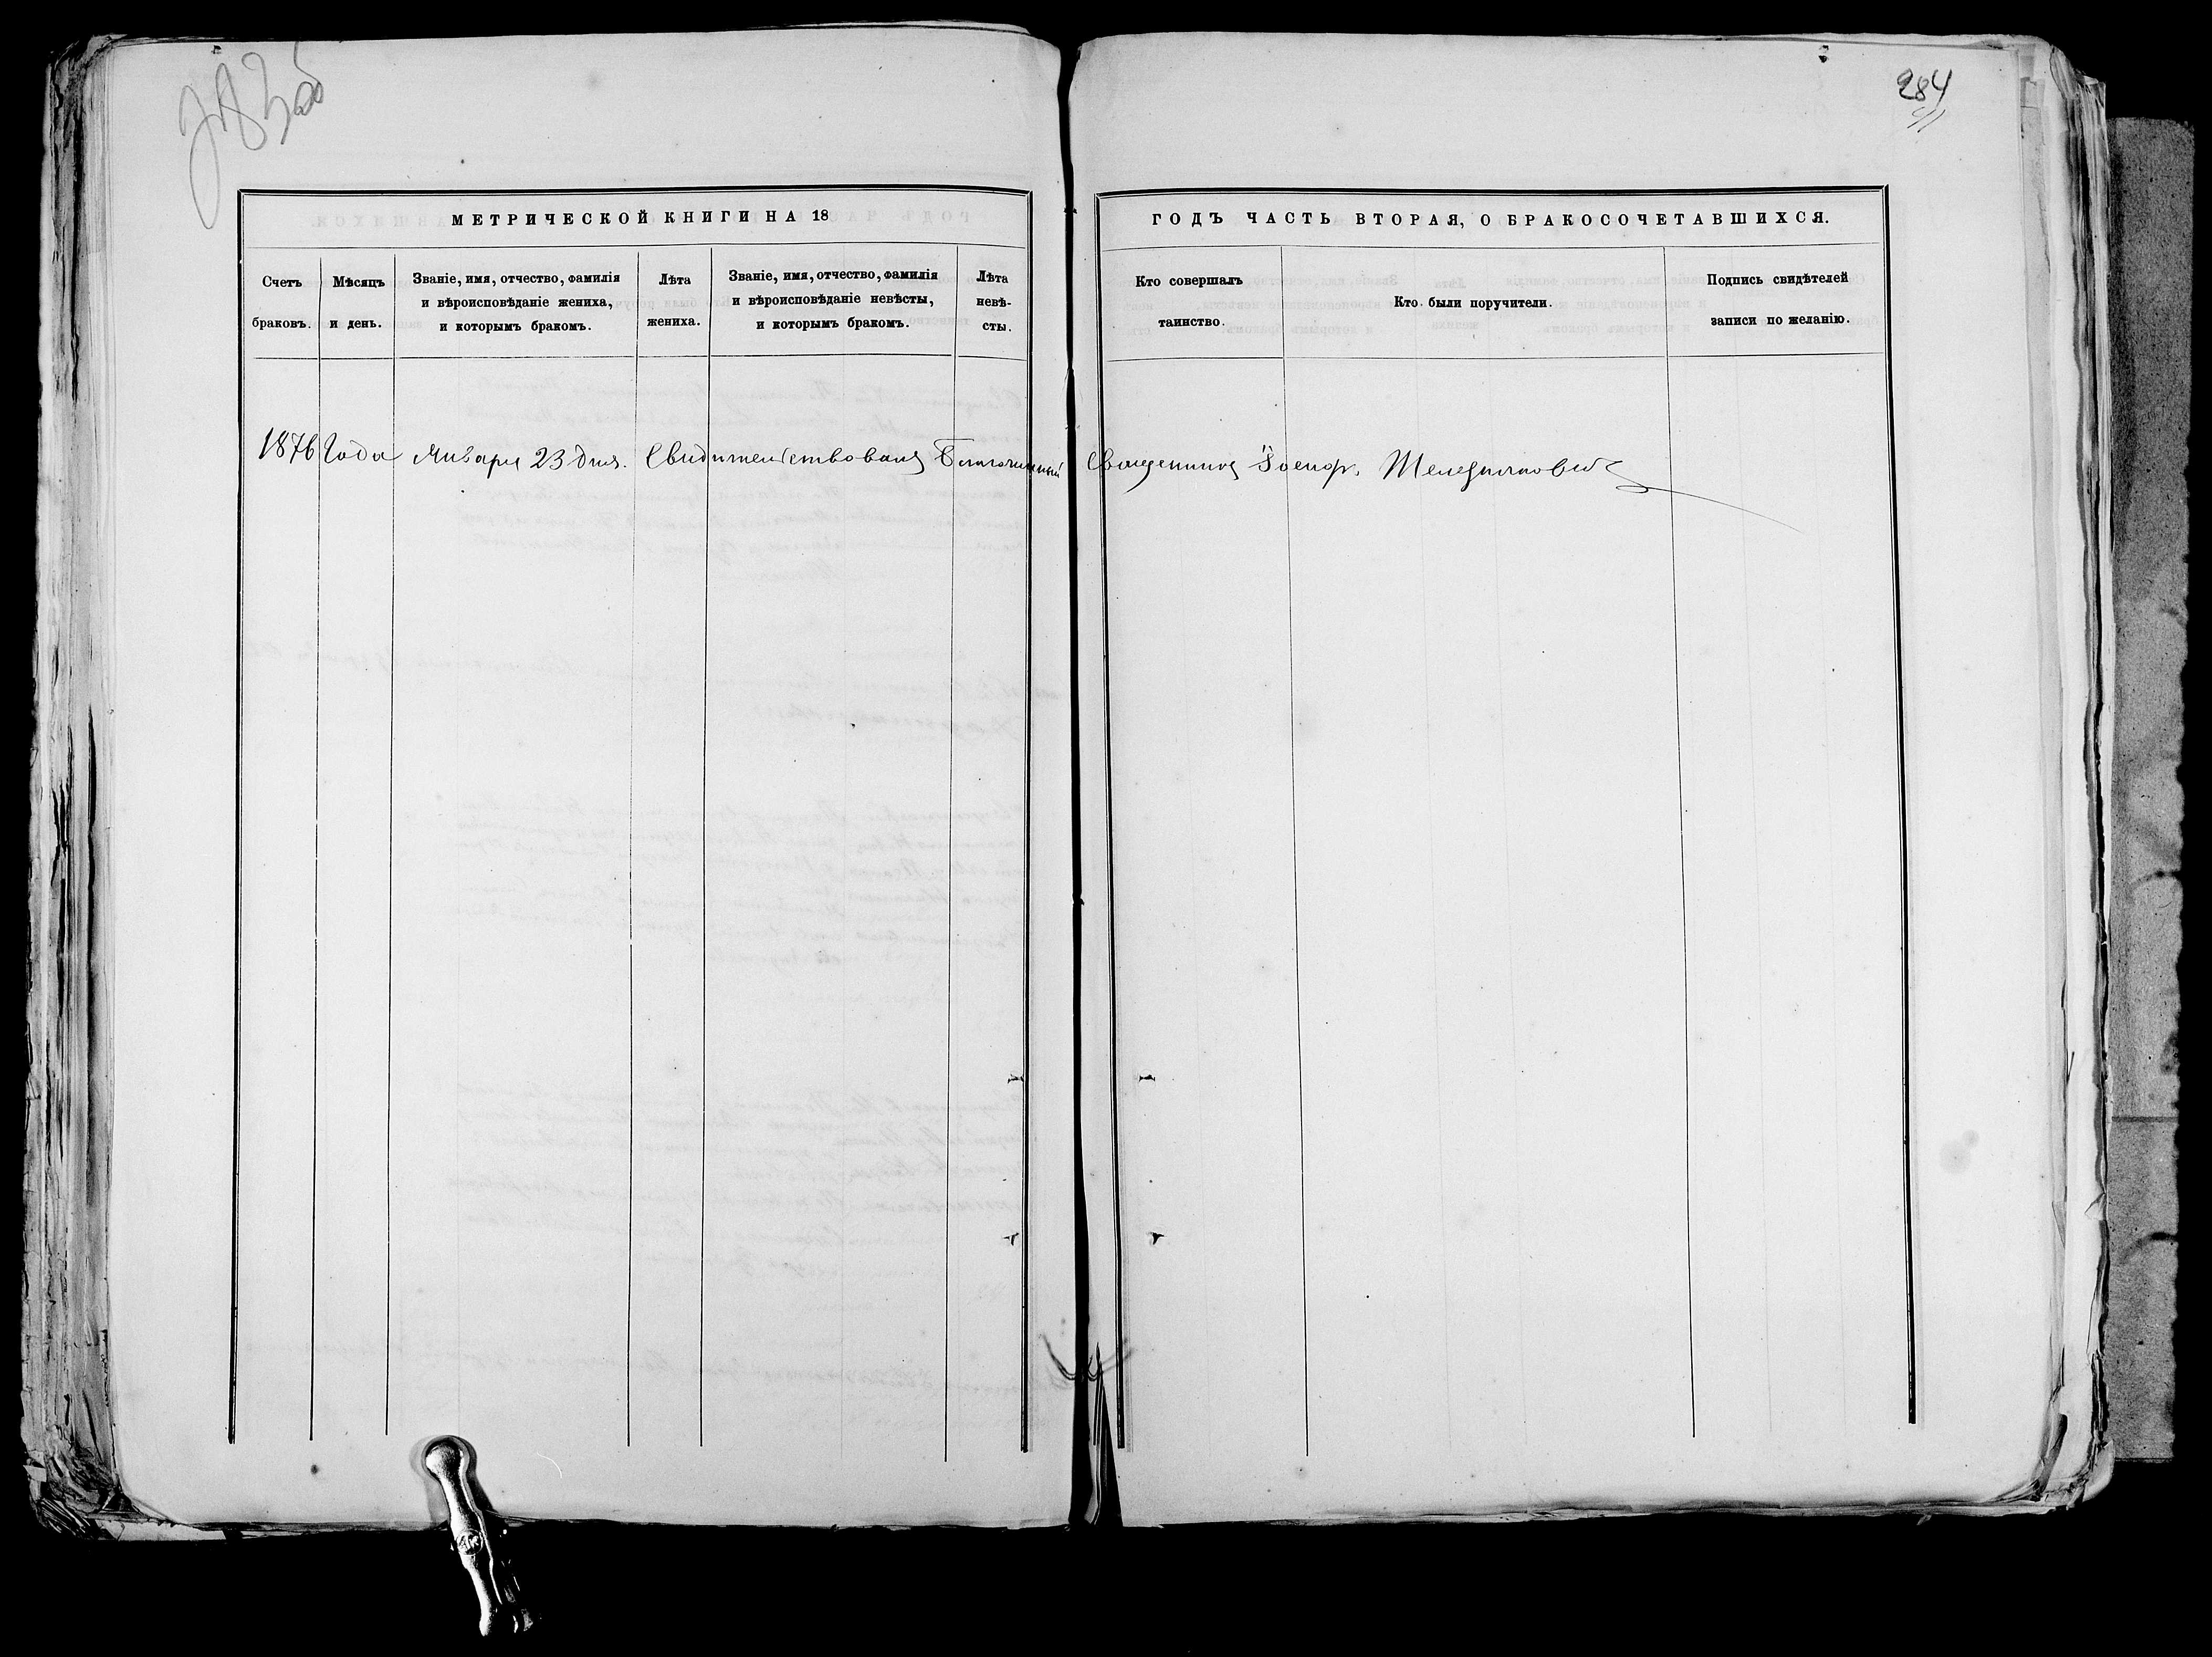 284
МЕТРИЧЕСКОЙ КНИГИ НА 18
ГОДЪ ЧАСТЬ ВТОРАЯ, О БРАКОСОЧЕТАВШИХСЯ.
Счетъ браковъ.
Мѣсяцъ и день.
Званіе, имя, отчество, фамилія
и вѣроисповѣданіе жениха,
и которымъ бракомъ.
Лѣта
жениха.
Званіе, имя, отчество, фамилія
и вѣроисповѣданіе невѣсты,
и которымъ бракомъ.
Лѣта
невѣ-
сты.
Кто совершалъ
таинство.
Кто были поручители.
Подпись свидѣтелей
записи по желанію.
1876 Года Января 23 дня. Свидетельствовалъ Благочинный Священникъ